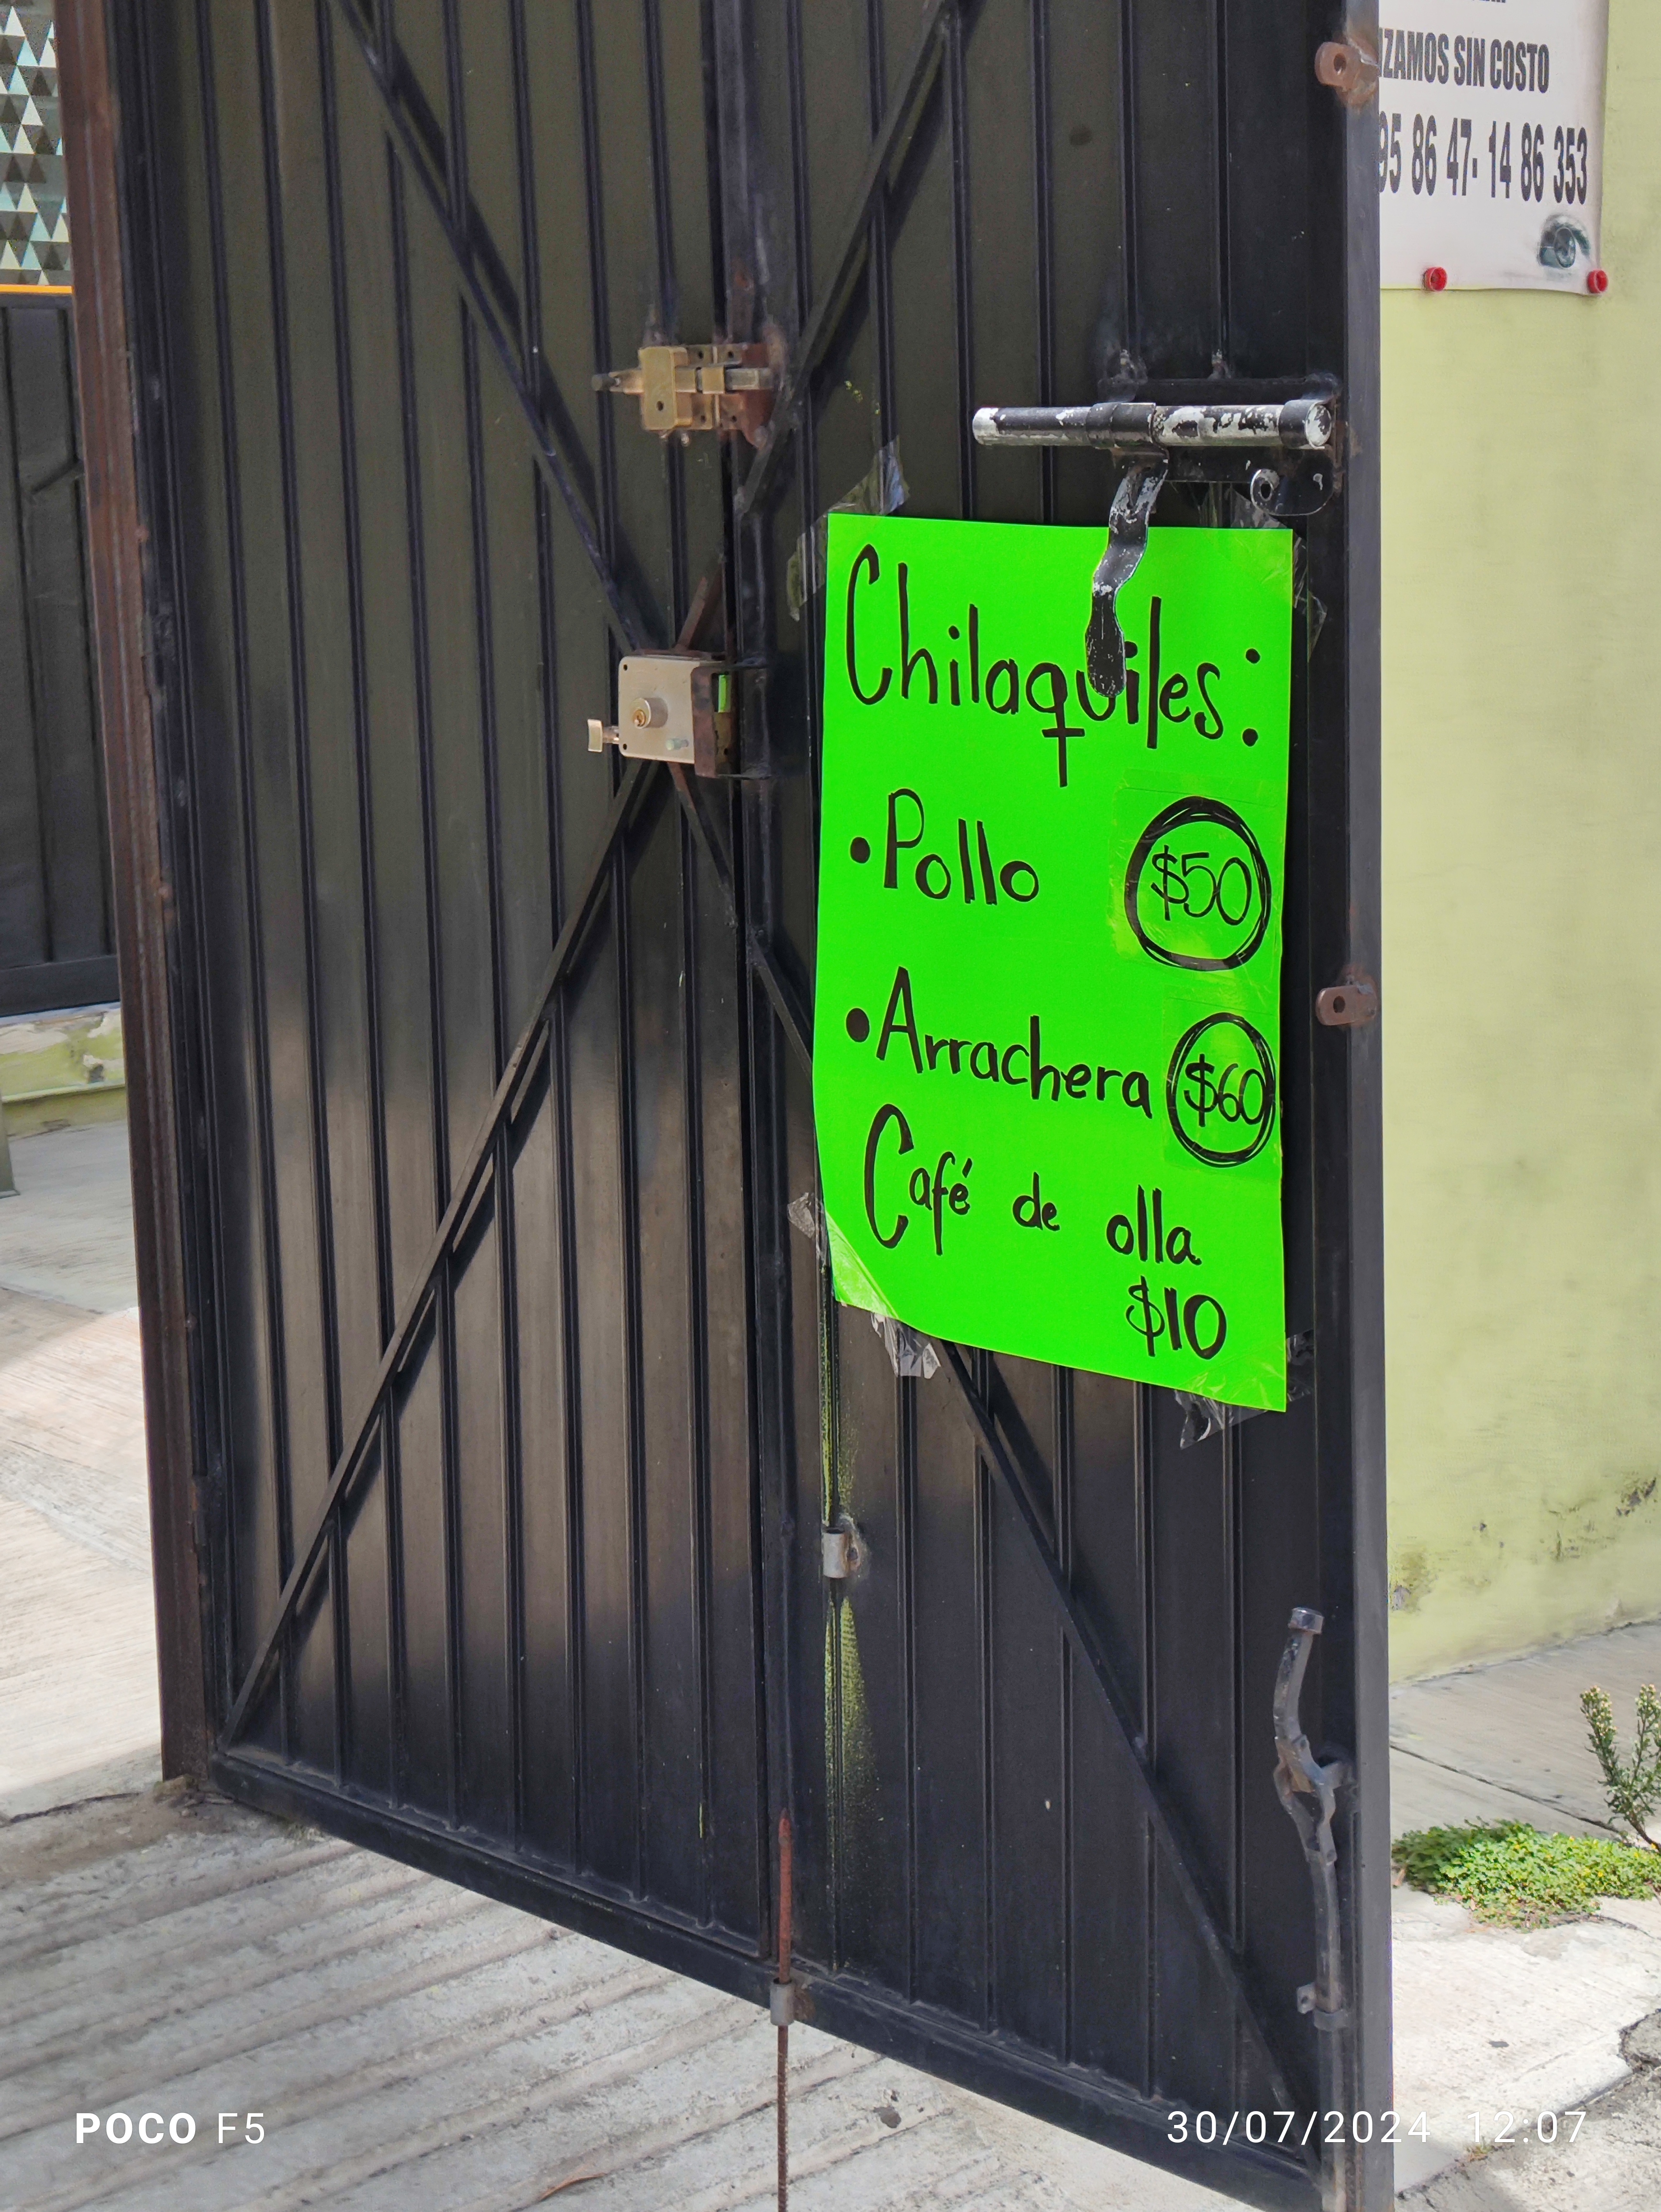 SIN COSTO
86 47- 14 86 353
Chilaquiles:
•Pollo $50
•Arrachera $60
Café de olla
$10
POCO F5
30/07/2024 12:07